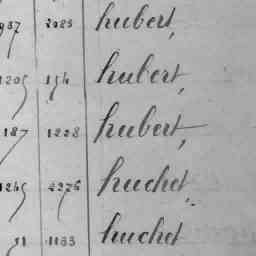 937 2085 hubert,
1205 154 hubert,
187 1228 hubert,
1245 2276 huchet,
11 1133 huchet